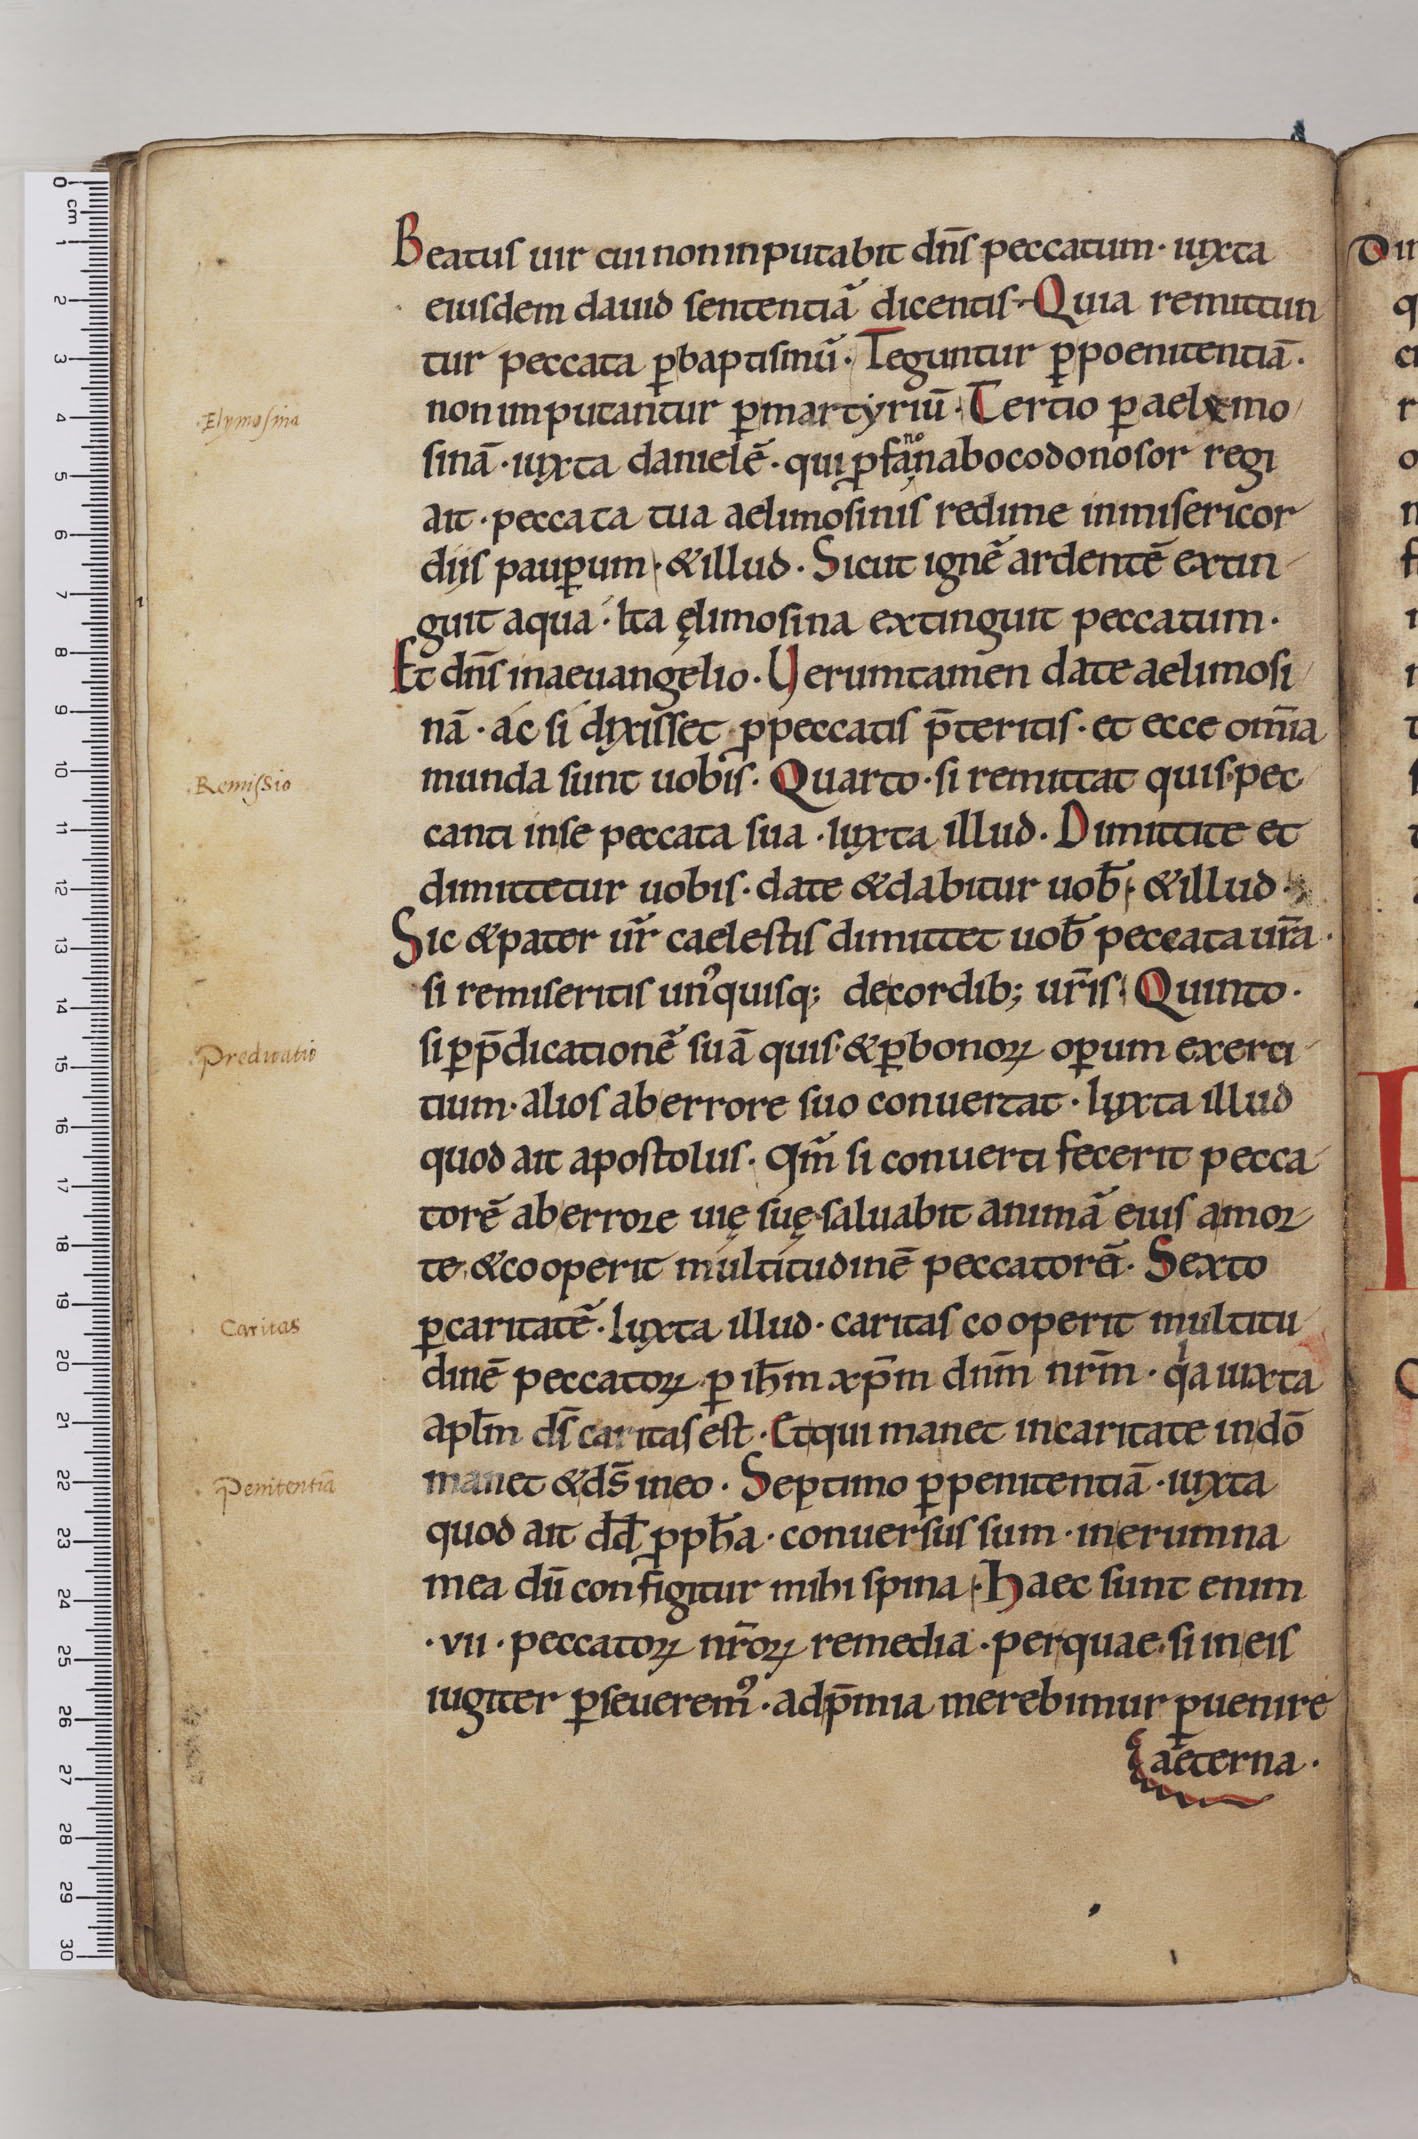 Beatus uir cui non inputabit dn̄s peccatum · iuxta
eiusdem dauid sententiā dicentis · Quia remittun
tur peccata ꝑ baptismū · Teguntur ꝑ poenitentiā ·
non imputantur ꝑ martyriū · Tertio ꝑ aelemo
Elymosina
sinā · iuxta danielē · qui ꝓfano nabocodonosor regi
ait · peccata tua aelimosinis redime in misericor
diis pauꝑum · & illud · Sicut ignē ardentē extin
guit aqua · Ita ęlimosina extinguit peccatum ·
Et dn̄s in aeuangelio · Uerumtamen date aelimosi
nā · ac si dixisset ꝓ peccatis p̄teritis · et ecce om̄ia
munda sunt uobis · Quarto · si remittat quis pec
Remissio
canti in se peccata sua · Iuxta illud · Dimittite et
dimittetur uobis · date & dabitur uob̄ · & illud ·
Sic & pater ur̄ caelestis dimittet uob̄ peccata ur̄a ·
si remiseritis unꝰquisq; de cordib; ur̄is · Quinto ·
si ꝑ p̄dicationē suā quis & ꝑ bonoꝝ oꝑum exerci
Predicatio
tium · alios ab errore suo conuertat · Iuxta illud
quod ait apostolus · Qm̄ si conuerti fecerit pecca
torē ab errore uię suę saluabit animā eius a mor
te & cooperit multitudinē peccatorē · Sexto
ꝑ caritatē · Iuxta illud · caritas cooperit multitu
Caritas
dinē peccatoꝝ ꝑ ih̄m xp̄m dnm̄ nr̄m · qa iuxta
apl̄m ds̄ caritas est · Et qui manet in caritate in dō
manet & ds̄ in eo · Septimo ꝑ penitentiā · iuxta
Penitentia
quod ait dd̄ ꝓph̄a · conuersus sum · in erumna
mea dū configitur mihi spina · Haec sunt enim
· vii · peccatoꝝ nr̄oꝝ remedia · per quae si in eis
iugiter ꝑseueremꝰ · ad p̄mia merebimur ꝑuenire
aeterna ·